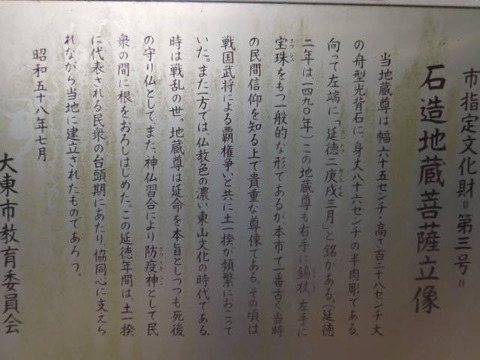 市指定文化財=第三号=
石造地蔵菩薩立像
当地蔵尊は、幅六十五センチ、高さ百二十八センチ大
の舟型光背石に、身丈八十六センチの半肉彫である。
向って左端に、「延徳二庚戌三月」と銘がある。(延徳
二年は、一四九〇年)この地蔵尊も右手に錫杖、左手に
宝珠をもつ一般的な形であるが、本市で一番古く当時
の民間信仰を知る上で貴重な尊像である。その頃は、
戦国武将による覇権争いと共に土一揆が頻繁におこって
いた。また一方では、仏教色の濃い東山文化の時代である。
時は戦乱の世。地蔵尊は延命を本旨としつつも死後
の守り仏として、また、神仏習合により防疫神として民
衆の間に根をおろしはじめた。この延徳年間は、土一揆
に代表される民衆の台頭期にあたり、協同心に支えら
れながら当地に建立されたものであろう。
昭和五十八年七月
大東市教育委員会